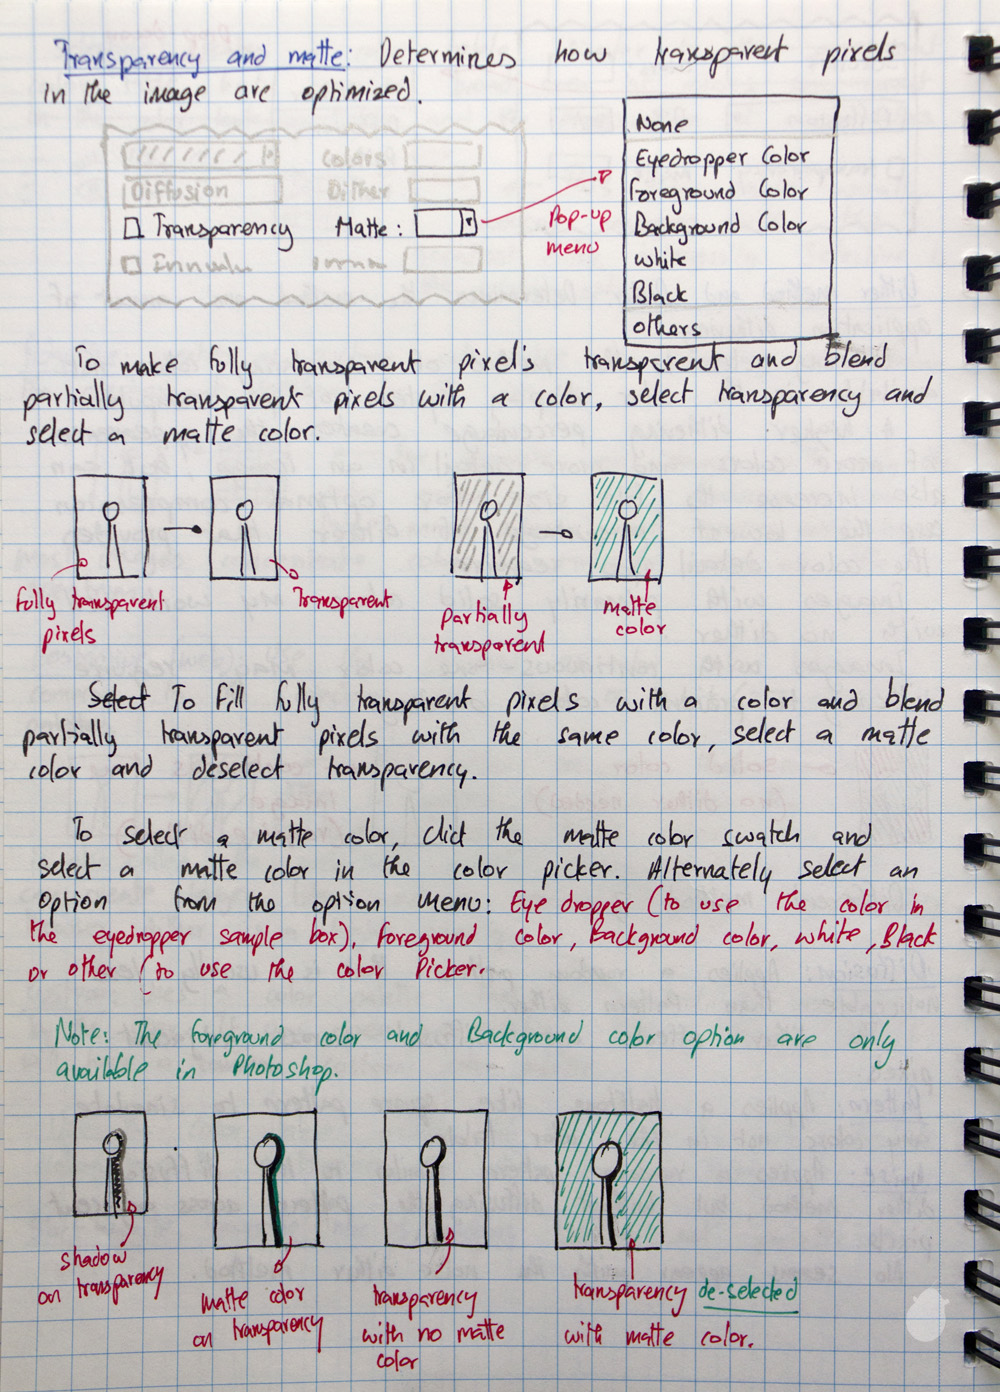 Transparency and matte: Determines how transparent pixels
in the image are optimized.
None
Eyedropper Color
Foreground Color
Background Color
white
Black
others
Colors
Diffusion
Dither
Transparency Matte:
Pop-up
menu
To make fully transparent pixel's transparent and blend
partially transparent pixels with a color, select transparency and
select a matte color.
fully transparent
pixels
Transparent
partially
transparent
matte
color
Select To Fill fully transparent pixels with a color and blend
partially transparent pixels with the same color, select a matte
color and deselect transparency.
To select a matte color, click the matte color swatch and
select a matte color in the color picker. Alternately select an
option from the option menu: Eye dropper (to use the color in
the eyedropper sample box), foreground color, Background color, white, Black
or other (to use the color Picker.
Note: The foreground color and Background color option are only
available in Photoshop.
shadow
on transparency
matte color
on transparency
transparency
with no matte
color
transparency de-selected
with matte color.